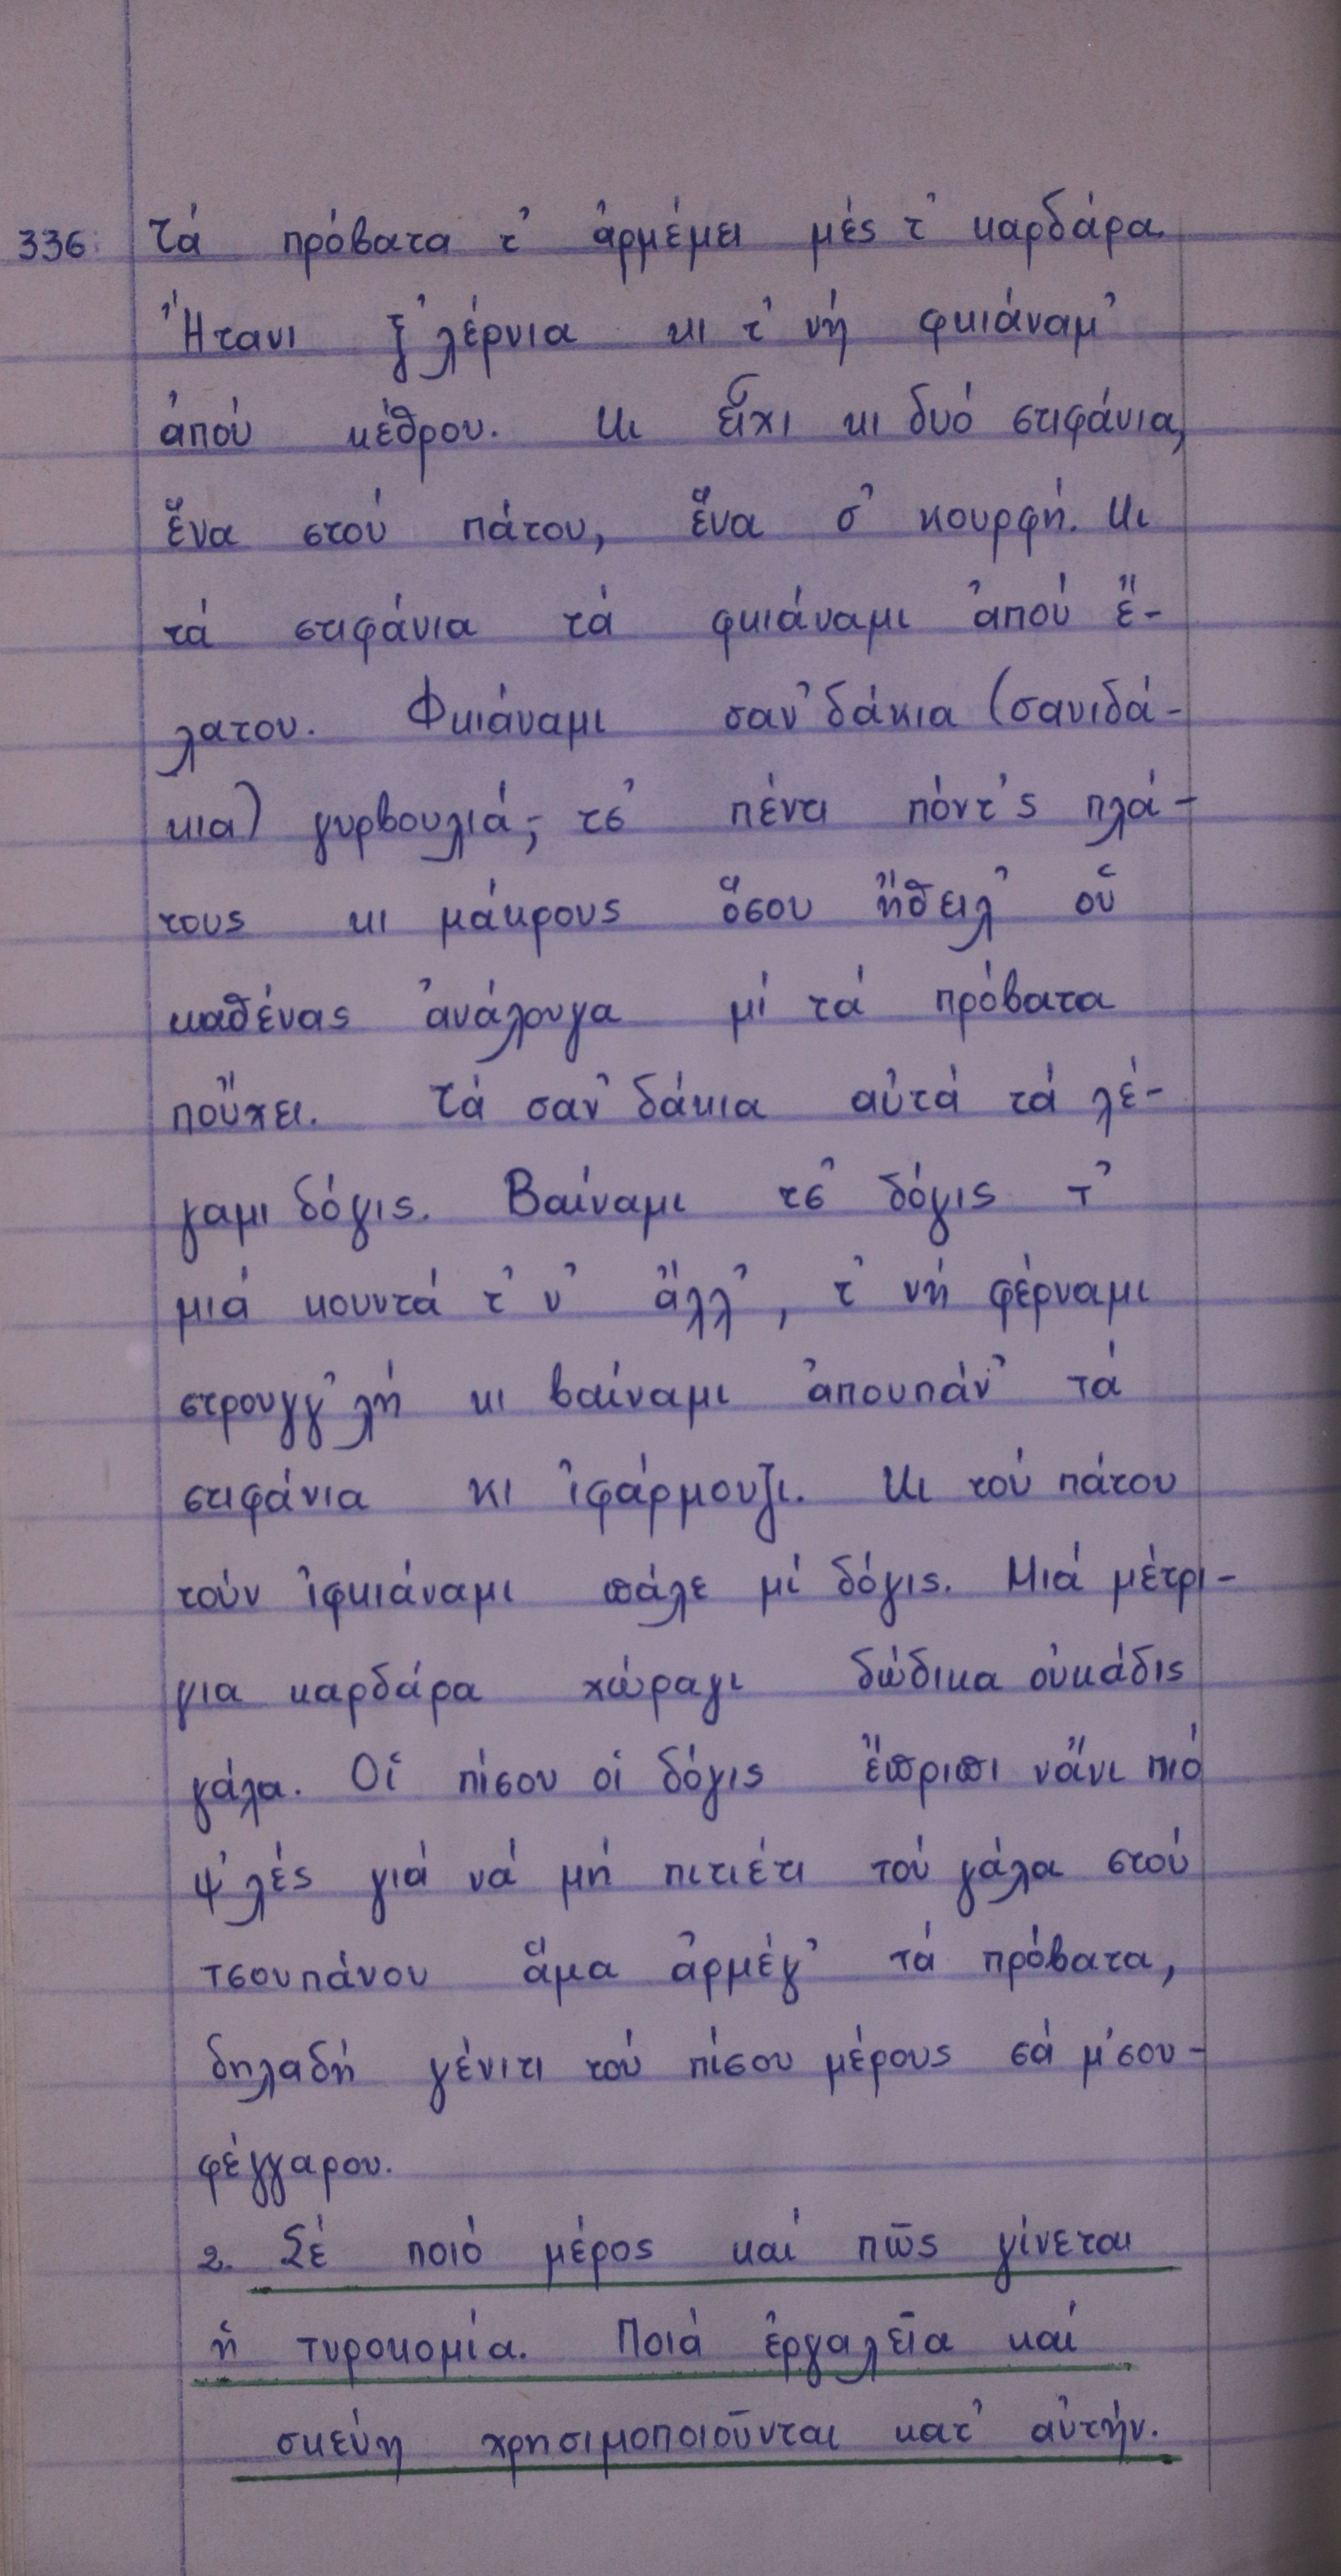 336. Τά πρόβατα τ' ἀρμέμει μές τ' καρδάρα.
Ἤτανι ξ'λέρνια κι τ' νή φκιάναμ'
ἀπού κέδρου. Κι εἶχι κι δυό στιφάνια,
ἕνα στού πάτου, ἕνα σ' κουρφή. Κι
τά στιφάνια τά φκιάναμι ἀπού ἔ-
λατου. Φκιάναμι σαν'δάκια (σανιδά-
κια) γυρβουλιά, τσ' πέντι πόντ'ς πλά-
τους κι μάκρους ὅσου ἤθειλ' οὑ
καθένας ἀνάλουγα μί τά πρόβατα
ποὔχει. Τά σαν'δάκια αὐτά τά λέ-
γαμι δόγις. Βαίναμι τσ' δόγις τ'
μιά κουντά τ' ν' ἄλλ', τ' νή φέρναμι
στρουγγ'λή κι βαίναμι ἀπουπάν' τά
στιφάνια κι ἰφάρμουζι. Κι τού πάτου
τούν ἰφκιάναμι πάλε μί δόγις. Μιά μέτρι-
για καρδάρα χώραγι δώδικα οὐκάδις
γάλα. Οἱ πίσου οἱ δόγις ἔπριπι νἄνι πιό
ψ'λές γιά νά μή πιτιέτι τού γάλα στού
τσουπάνου ἅμα ἀρμέγ' τά πρόβατα,
δηλαδή γένιτι τού πίσου μέρους σά μ'σου-
φέγγαρου.
2. Σέ ποιό μέρος καί πῶς γίνεται
ἡ τυροκομία. Ποιά ἐργαλεῖα καί
σκεύη χρησιμοποιοῦνται κατ' αὐτήν.